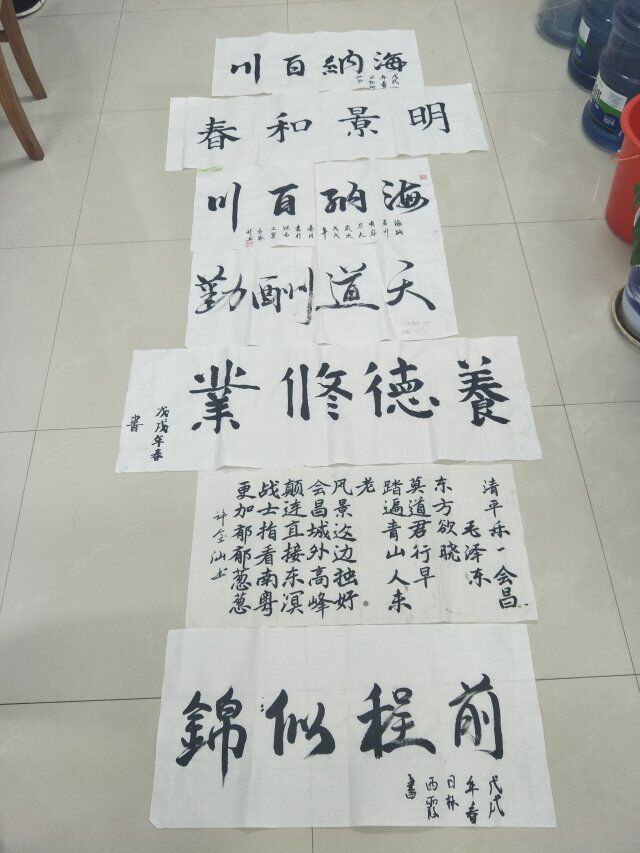 海納百川
戊戌
年春
明景和春
海纳百川
海纳
百川
有容
乃大
戊戌
年
天道酬勤
養德修業
戊戌年春
書
清平乐一会昌
毛泽东
东方欲晓
莫道君行早
踏遍青山人未
老
风景这边独好
会昌城外高峰
颠连直接东溟
战士指看南粤
更加郁郁葱葱
许金仙书
前程似錦
戊戌
年春
日林
西霞
書